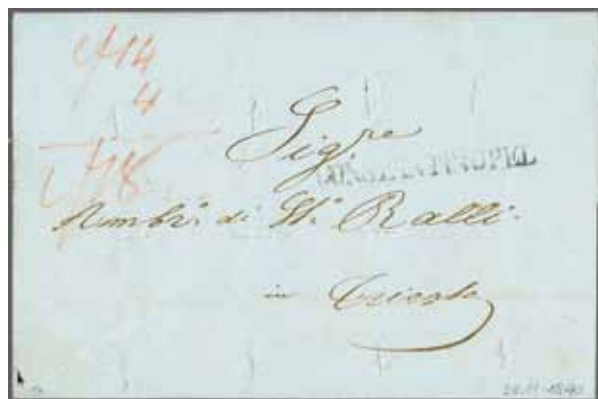 14
4
18
Sig.re
CONSTANTINOPEL
Ambr.o di St.o Ralli.
in Trieste